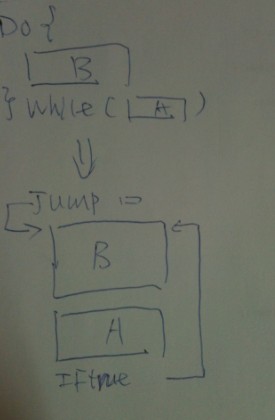 Do {
B
} while ( A )
Jump =
B
A
IFtrue